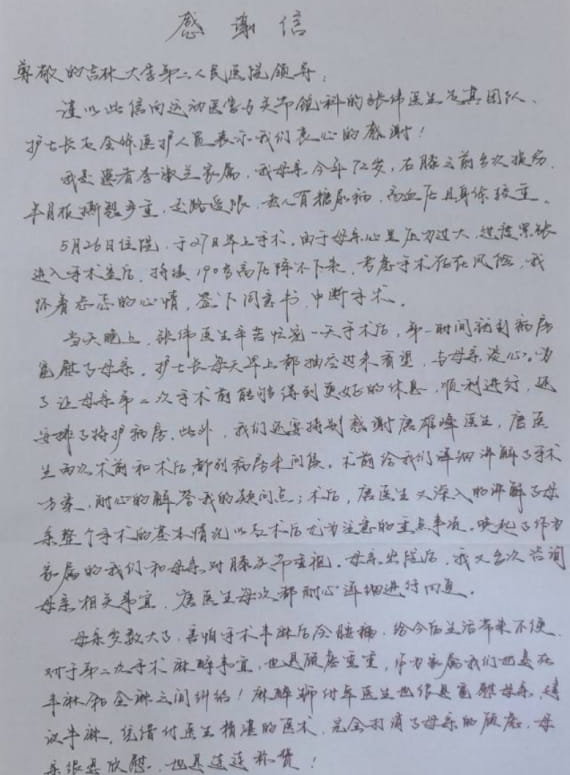 感谢信
尊敬的吉林大学第二人民医院领导：
谨以此信向运动医学与关节镜科的张伟医生及其团队、
护士长及全体医护人员表示我们衷心的感谢！
我是患者李淑兰家属，我母亲今年72岁，右膝之前多次损伤，
半月板撕裂严重，走路受限，老人有糖尿病，高血压且身体较重。
5月26日住院，于27日早上手术。由于母亲心里压力过大，过度紧张
进入手术室后，持续190多高压降不下来，考虑手术存在风险，我
怀着忐忑的心情，签下同意书，中断手术。
当天晚上，张伟医生辛苦忙完一天手术后，第一时间就到病房
宽慰了母亲。护士长每天早上都抽空过来看望，与母亲谈心。为
了让母亲第二次手术前能够得到更好的休息，顺利进行，还
安排了特护病房。此外，我们还要特别感谢唐雄峰医生，唐医
生两次术前和术后都到病房来问候。术前给我们详细讲解了手术
方案，耐心的解答我的疑问点；术后，唐医生又深入的讲解了母
亲整个手术的基本情况以及术后尤为注意的重点事项，唤起了作为
家属的我们和母亲对膝关节重视。母亲出院后，我又多次咨询
母亲相关事宜，唐医生每次都耐心详细进行回复。
母亲岁数大了，害怕手术半麻后会腰痛，给今后生活带来不便，
对于第二次手术麻醉事宜，也是顾虑重重，作为家属我们也是在
半麻和全麻之间纠结！麻醉师付军医生也很是宽慰母亲，建
议半麻，凭借付医生精湛的医术，完全打消了母亲的顾虑，母
亲很是欣慰，也是连连称赞！